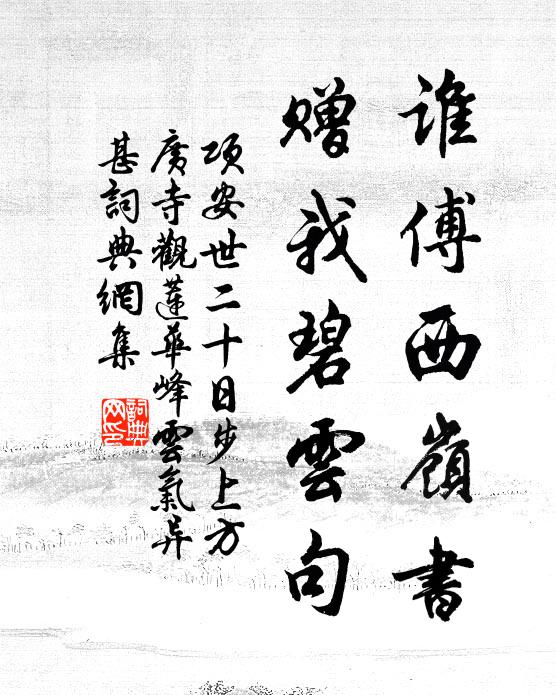 誰傅西嶺書
贈我碧雲句
項安世二十日步上方
廣寺觀蓮華峰雲氣异
甚詞典網集
詞典
网印